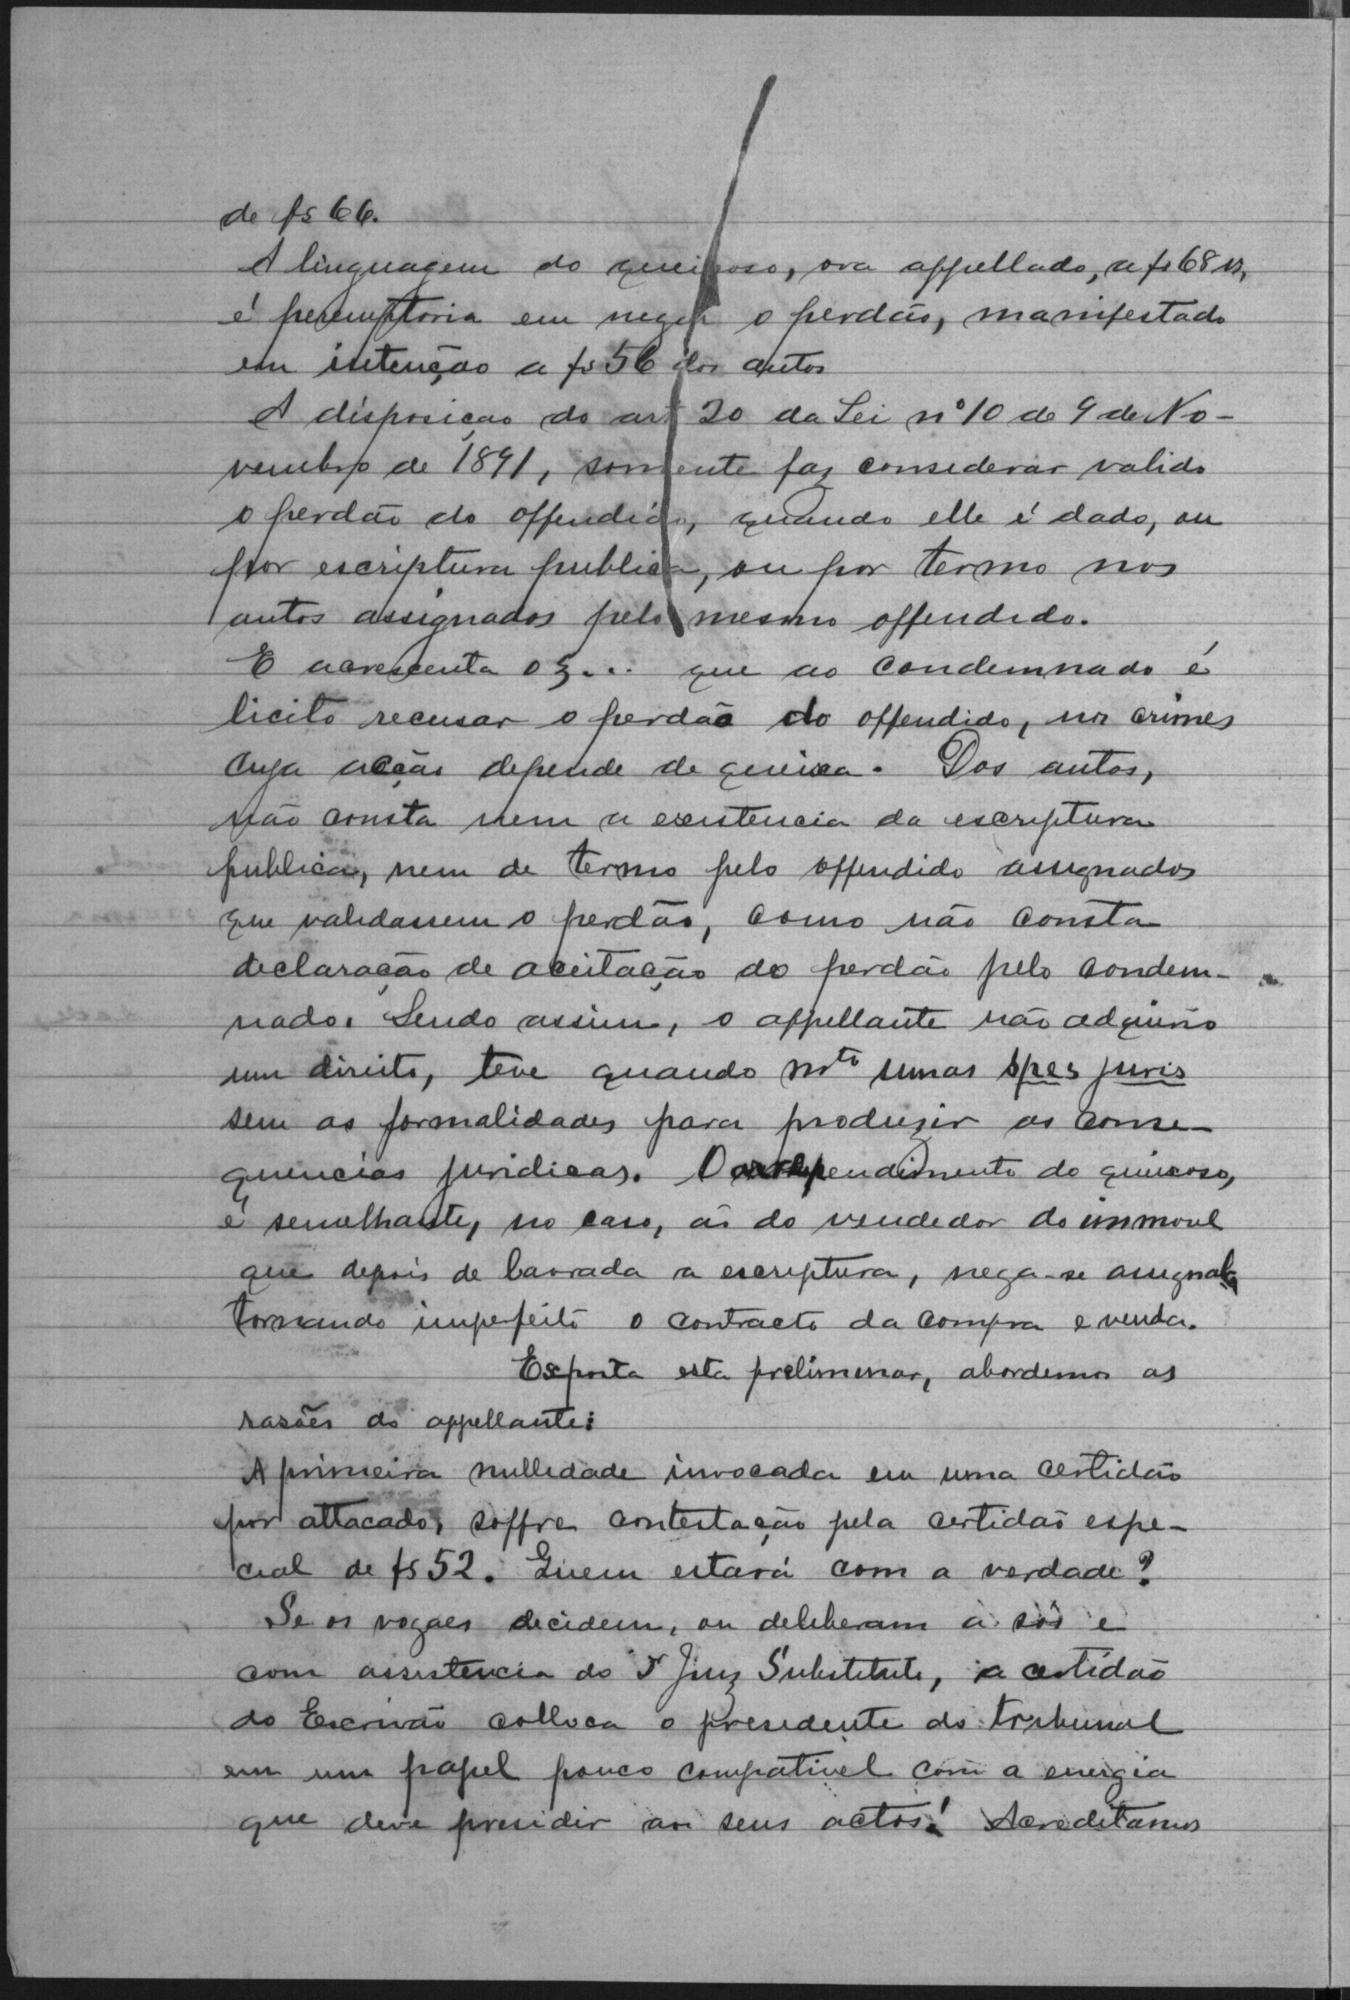 de fs 66.
A linguagem do queixoso, ora appellado, a fs 68 v,
é peremptoria em negar o perdão, manifestado
em intenção a fs 56 dos autos
A disposição do art 20 da Lei nº 10 de 9 de No-
vembro de 1891, somente faz considerar valido
o perdão do offendido, quando elle é dado, ou
por escriptura publica, ou por termo nos
autos assignados pelo mesmo offendido.
E acrescenta o § ... que ao condemnado é
licito recusar o perdão do offendido, nos crimes
cuja acção depende de queixa. Dos autos,
não consta nem a existencia da escriptura
publica, nem de termo pelo offendido assignados
que validassem o perdão, como não consta
declaração de aceitação do perdão pelo condem-
nado. Sendo assim, o appellante não adquirio
um direito, teve quando mto umas spes juris
sem as formalidades para produzir as conse-
quencias juridicas. O arrependimento do queixoso,
é semelhante, no caso, ás do vendedor do immovel
que depois de lavrada a escriptura, nega-se assignala
tornando imperfeito o contracto da compra e venda.
Exposta esta preliminar, abordemos as
rasões do appellante:
A primeira nullidade invocada em uma certidão
por attacado, soffre contestação pela certidão espe-
cial de fs 52. Quem estará com a verdade?
Se os vogaes decidem, ou deliberam a sós e
com assistencia do Juiz Substituto, a certidão
do Escrivão colloca o presidente do tribunal
em um papel pouco compativel com a energia
que deve presidir aos seus actos! Acreditamos